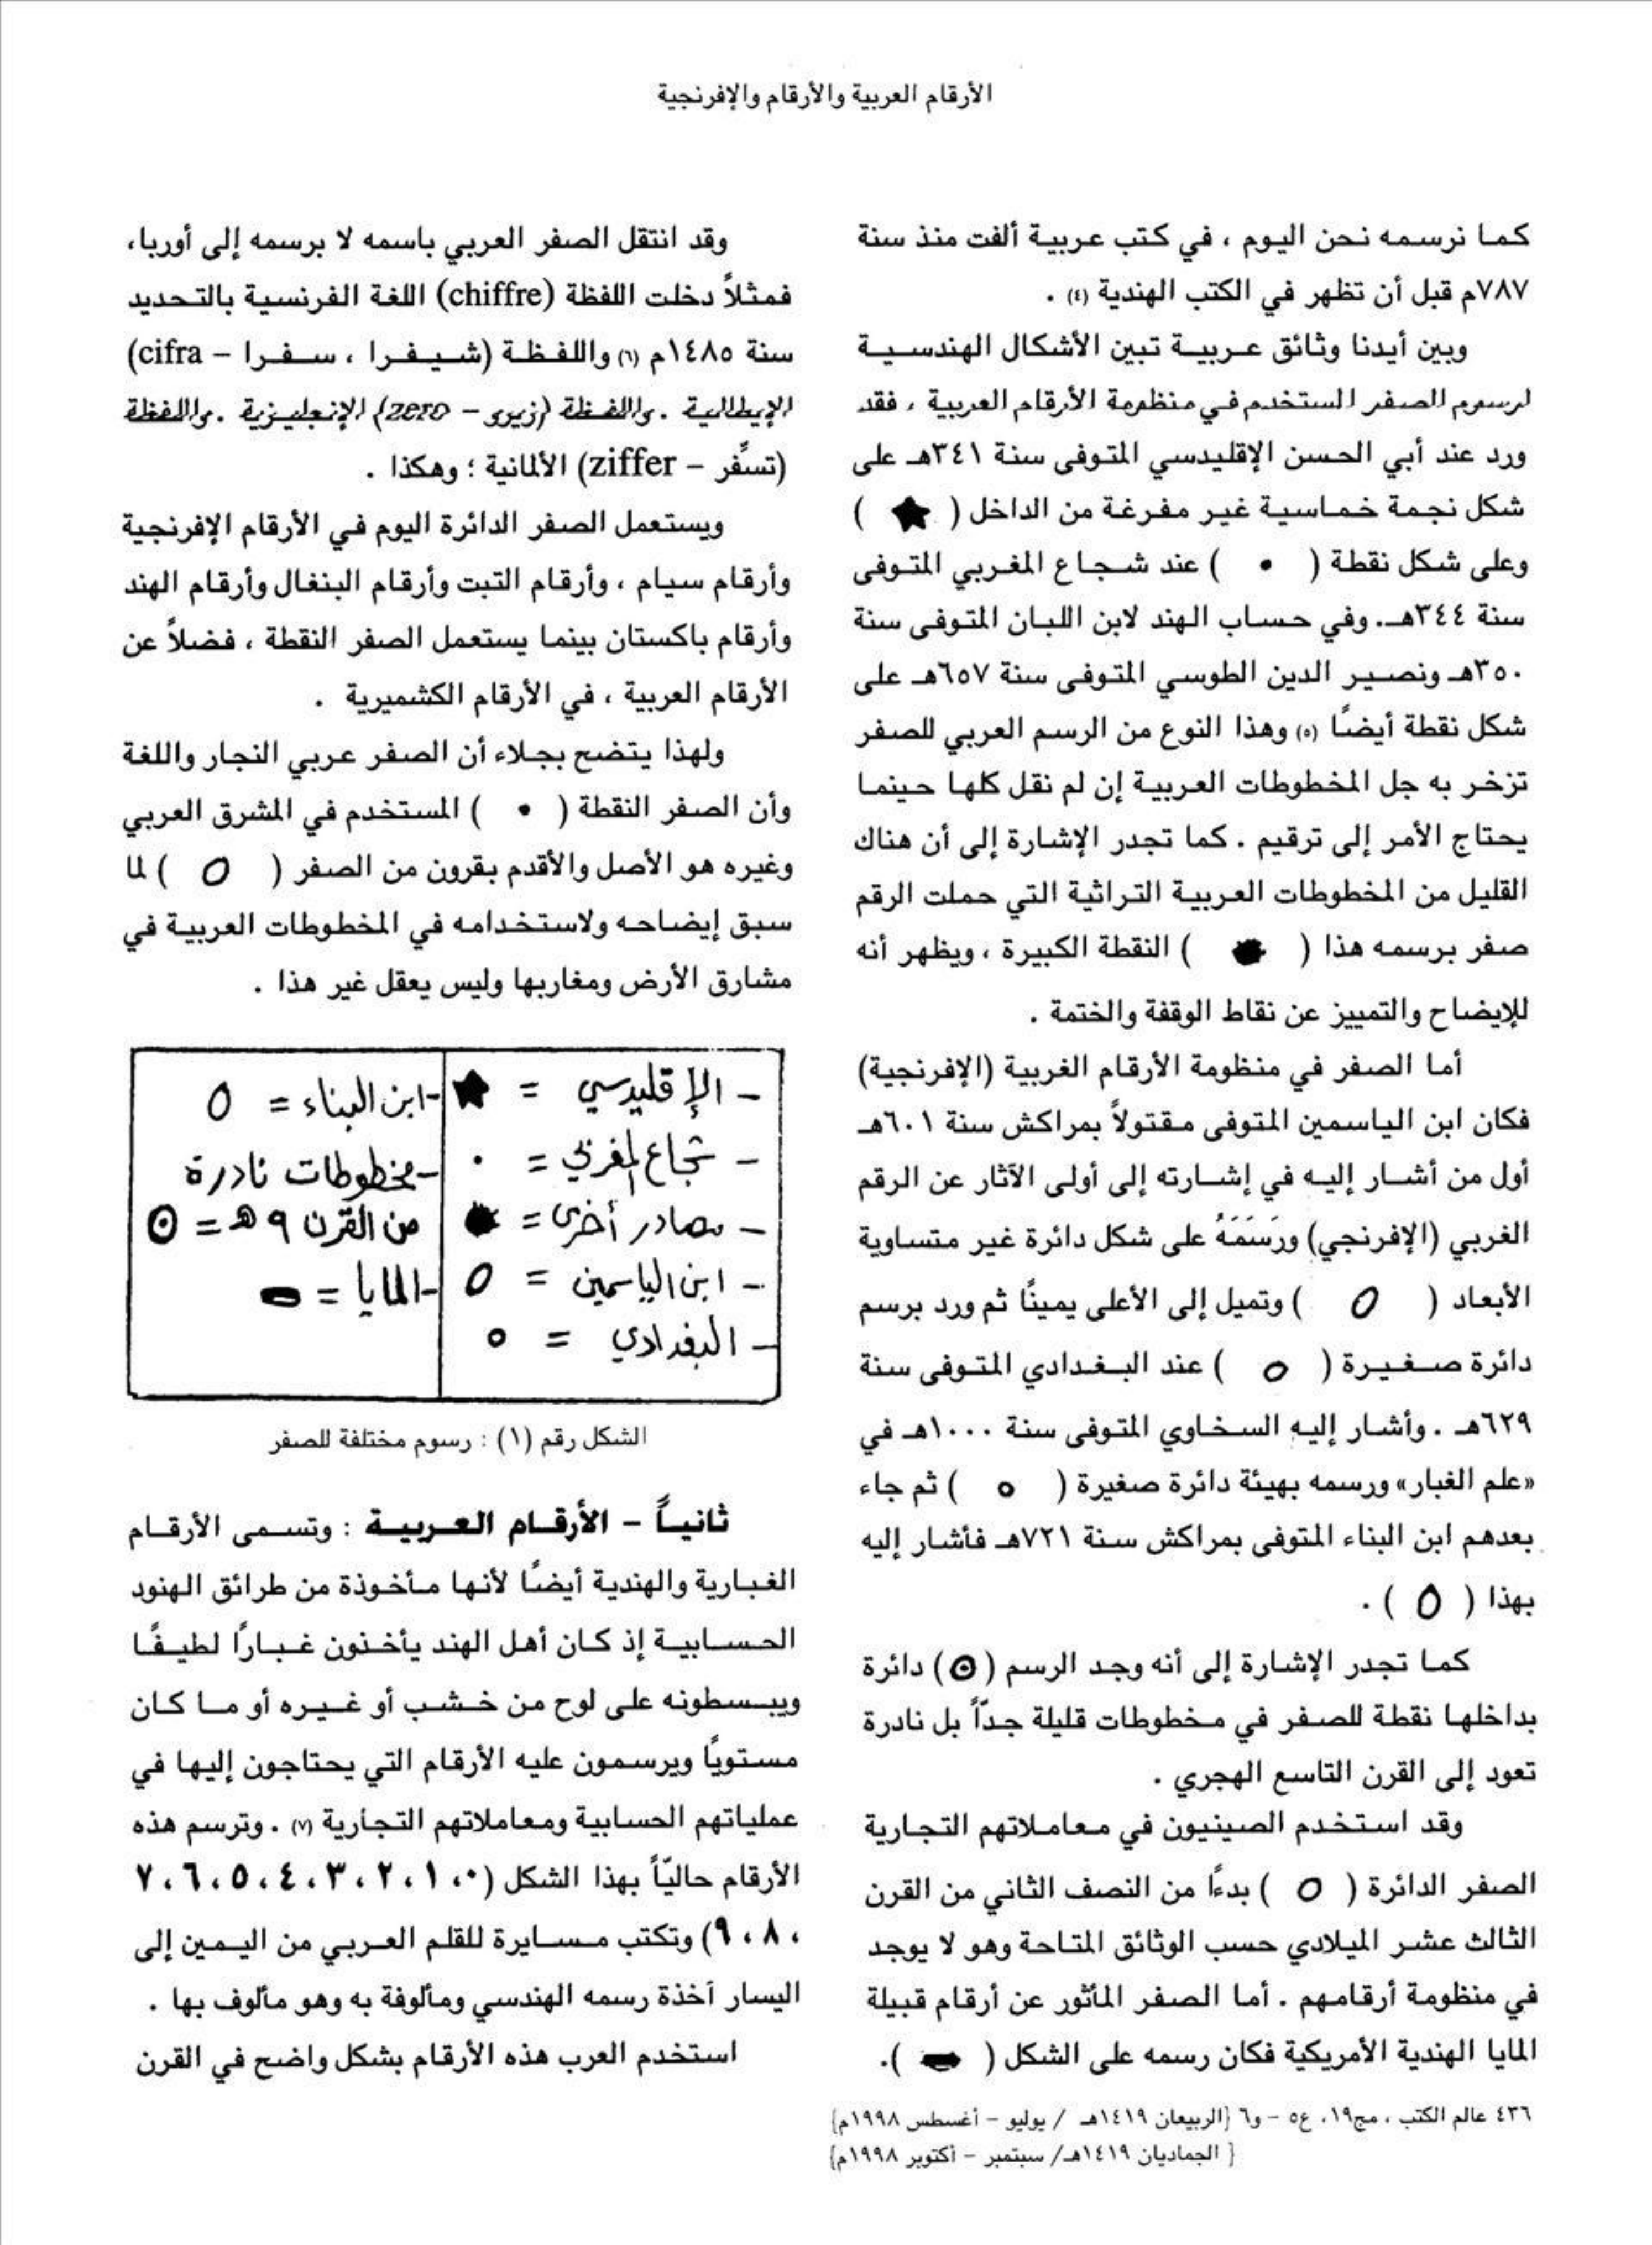 الأرقام العربية والأرقام والإفرنجية
كما نرسمه نحن اليوم ، في كتب عربية ألفت منذ سنة
٧٨٧م قبل أن تظهر في الكتب الهندية (٤) .
وبين أيدنا وثائق عربية تبين الأشكال الهندسية
لرسوم الصفر المستخدم في منظومة الأرقام العربية ، فقد
ورد عند أبي الحسن الإقليدسي المتوفى سنة ٣٤١هـ على
شكل نجمة خماسية غير مفرغة من الداخل ( ★ )
وعلى شكل نقطة ( • ) عند شجاع المغربي المتوفى
سنة ٣٤٤هـ. وفي حساب الهند لابن اللبان المتوفى سنة
٣٥٠هـ ونصير الدين الطوسي المتوفى سنة ٦٥٧هـ على
شكل نقطة أيضًا (٥) وهذا النوع من الرسم العربي للصفر
تزخر به جل المخطوطات العربية إن لم نقل كلها حينما
يحتاج الأمر إلى ترقيم . كما تجدر الإشارة إلى أن هناك
القليل من المخطوطات العربية التراثية التي حملت الرقم
صفر برسمه هذا ( ● ) النقطة الكبيرة ، ويظهر أنه
للإيضاح والتمييز عن نقاط الوقفة والختمة .
أما الصفر في منظومة الأرقام الغربية (الإفرنجية)
فكان ابن الياسمين المتوفى مقتولاً بمراكش سنة ٦٠١هـ
أول من أشار إليه في إشارته إلى أولى الآثار عن الرقم
الغربي (الإفرنجي) ورَسَمَهُ على شكل دائرة غير متساوية
الأبعاد ( 0 ) وتميل إلى الأعلى يمينًا ثم ورد برسم
دائرة صغيرة ( o ) عند البغدادي المتوفى سنة
٦٢٩هـ . وأشار إليه السخاوي المتوفى سنة ١٠٠٠هـ في
«علم الغبار» ورسمه بهيئة دائرة صغيرة ( o ) ثم جاء
بعدهم ابن البناء المتوفى بمراكش سنة ٧٢١هـ فأشار إليه
بهذا ( 0 ) .
كما تجدر الإشارة إلى أنه وجد الرسم (⊙) دائرة
بداخلها نقطة للصفر في مخطوطات قليلة جدّاً بل نادرة
تعود إلى القرن التاسع الهجري .
وقد استخدم الصينيون في معاملاتهم التجارية
الصفر الدائرة ( O ) بدءًا من النصف الثاني من القرن
الثالث عشر الميلادي حسب الوثائق المتاحة وهو لا يوجد
في منظومة أرقامهم . أما الصفر المأثور عن أرقام قبيلة
المايا الهندية الأمريكية فكان رسمه على الشكل ( ).
وقد انتقل الصفر العربي باسمه لا برسمه إلى أوربا،
فمثلاً دخلت اللفظة (chiffre) اللغة الفرنسية بالتحديد
سنة ١٤٨٥م (٦) واللفظة (شيفرا ، سفرا – cifra)
الإيطالية . واللفظة (زيرو – zero) الإنجليزية . واللفظة
(تسفَّر – ziffer) الألمانية ؛ وهكذا .
ويستعمل الصفر الدائرة اليوم في الأرقام الإفرنجية
وأرقام سيام ، وأرقام التبت وأرقام البنغال وأرقام الهند
وأرقام باكستان بينما يستعمل الصفر النقطة ، فضلاً عن
الأرقام العربية ، في الأرقام الكشميرية .
ولهذا يتضح بجلاء أن الصفر عربي النجار واللغة
وأن الصفر النقطة ( • ) المستخدم في المشرق العربي
وغيره هو الأصل والأقدم بقرون من الصفر ( O ) لما
سبق إيضاحه ولاستخدامه في المخطوطات العربية في
مشارق الأرض ومغاربها وليس يعقل غير هذا .
– الإقليدسي = ★
– شجاع المغربي = •
– مصادر أخرى = ●
– ابن الياسمين = 0
– البغدادي = o
-ابن البناء = 0
-مخطوطات نادرة
من القرن ٩هـ = ⊙
-المايا =
الشكل رقم (١) : رسوم مختلفة للصفر
ثانياً – الأرقام العربية : وتسمى الأرقام
الغبارية والهندية أيضًا لأنها مأخوذة من طرائق الهنود
الحسابية إذ كان أهل الهند يأخذون غبارًا لطيفًا
ويبسطونه على لوح من خشب أو غيره أو ما كان
مستويًا ويرسمون عليه الأرقام التي يحتاجون إليها في
عملياتهم الحسابية ومعاملاتهم التجارية (٧) . وترسم هذه
الأرقام حاليّاً بهذا الشكل (٠، ١ ، ٢ ، ٣ ، ٤ ، ٥ ، ٦ ، ٧
، ٨ ، ٩) وتكتب مسايرة للقلم العربي من اليمين إلى
اليسار آخذة رسمه الهندسي ومألوفة به وهو مألوف بها .
استخدم العرب هذه الأرقام بشكل واضح في القرن
٤٣٦ عالم الكتب ، مج١٩، ع٥ – و٦ {الربيعان ١٤١٩هـ / يوليو – أغسطس ١٩٩٨م}
{ الجماديان ١٤١٩هـ/ سبتمبر – أكتوبر ١٩٩٨م}